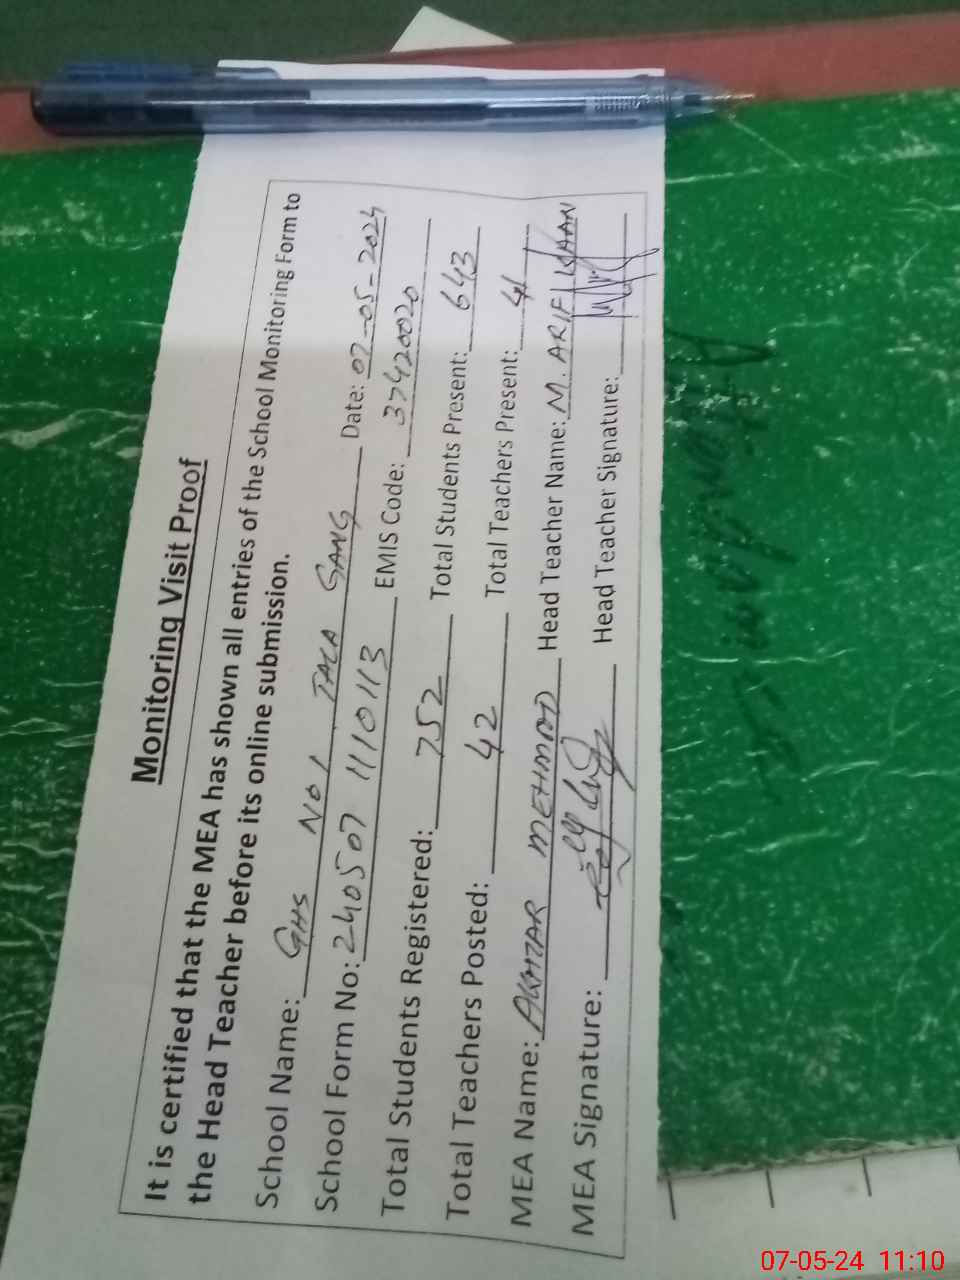 Monitoring Visit Proof
It is certified that the MEA has shown all entries of the School Monitoring Form to
the Head Teacher before its online submission.
School Name: GHS No 1 TALA GANG Date: 07-05-2024
School Form No: 240507 1110113 EMIS Code: 37420020
Total Students Registered: 752 Total Students Present: 643
Total Teachers Posted: 42 Total Teachers Present: 41
MEA Name: AKHTAR MEHMOOD Head Teacher Name: M. ARIF KHAN
MEA Signature: Head Teacher Signature:
07-05-24 11:10